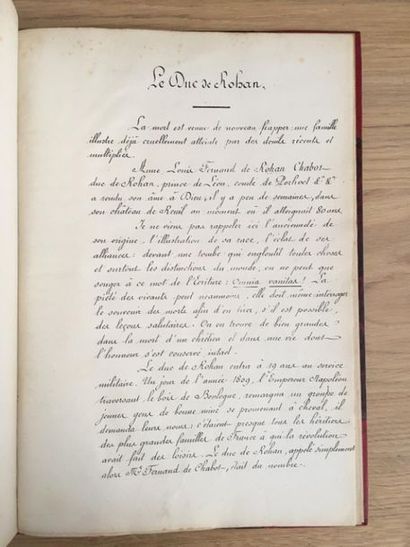 Le Duc de Rohan.
La mort est venue de nouveau frapper une famille
illustre déjà cruellement atteinte par des deuils récents et
multipliés.
Anne Louis Fernand de Rohan Chabot
duc de Rohan, prince de Léon, comte de Porhoët &a &a
a rendu son âme à Dieu, il y a peu de semaines, dans
son château de Reuil au moment où il atteignait 80 ans.
Je ne viens pas rappeler ici l'ancienneté de
son origine, l'illustration de sa race, l'éclat de ses
alliances : devant une tombe qui engloutit toutes choses
et surtout les distinctions du monde, on ne peut que
songer à ce mot de l'Ecriture : Omnia vanitas ! La
piété des vivants peut néanmoins, elle doit même interroger
le souvenir des morts afin d'en tirer, s'il est possible,
des leçons salutaires. On en trouve de bien grandes
dans la mort d'un chrétien et dans une vie dont
l'honneur s'est conservé intact.
Le duc de Rohan entra à 19 ans au service
militaire. Un jour de l'année 1809, l'Empereur Napoléon
traversant le bois de Boulogne, remarqua un groupe de
jeunes gens de bonne mine se promenant à cheval, il
demanda leurs noms : c'étaient presque tous les héritiers
des plus grandes familles de France à qui la révolution
avait fait des loisirs. Le duc de Rohan, appelé simplement
alors Mr Fernand de Chabot, était du nombre.